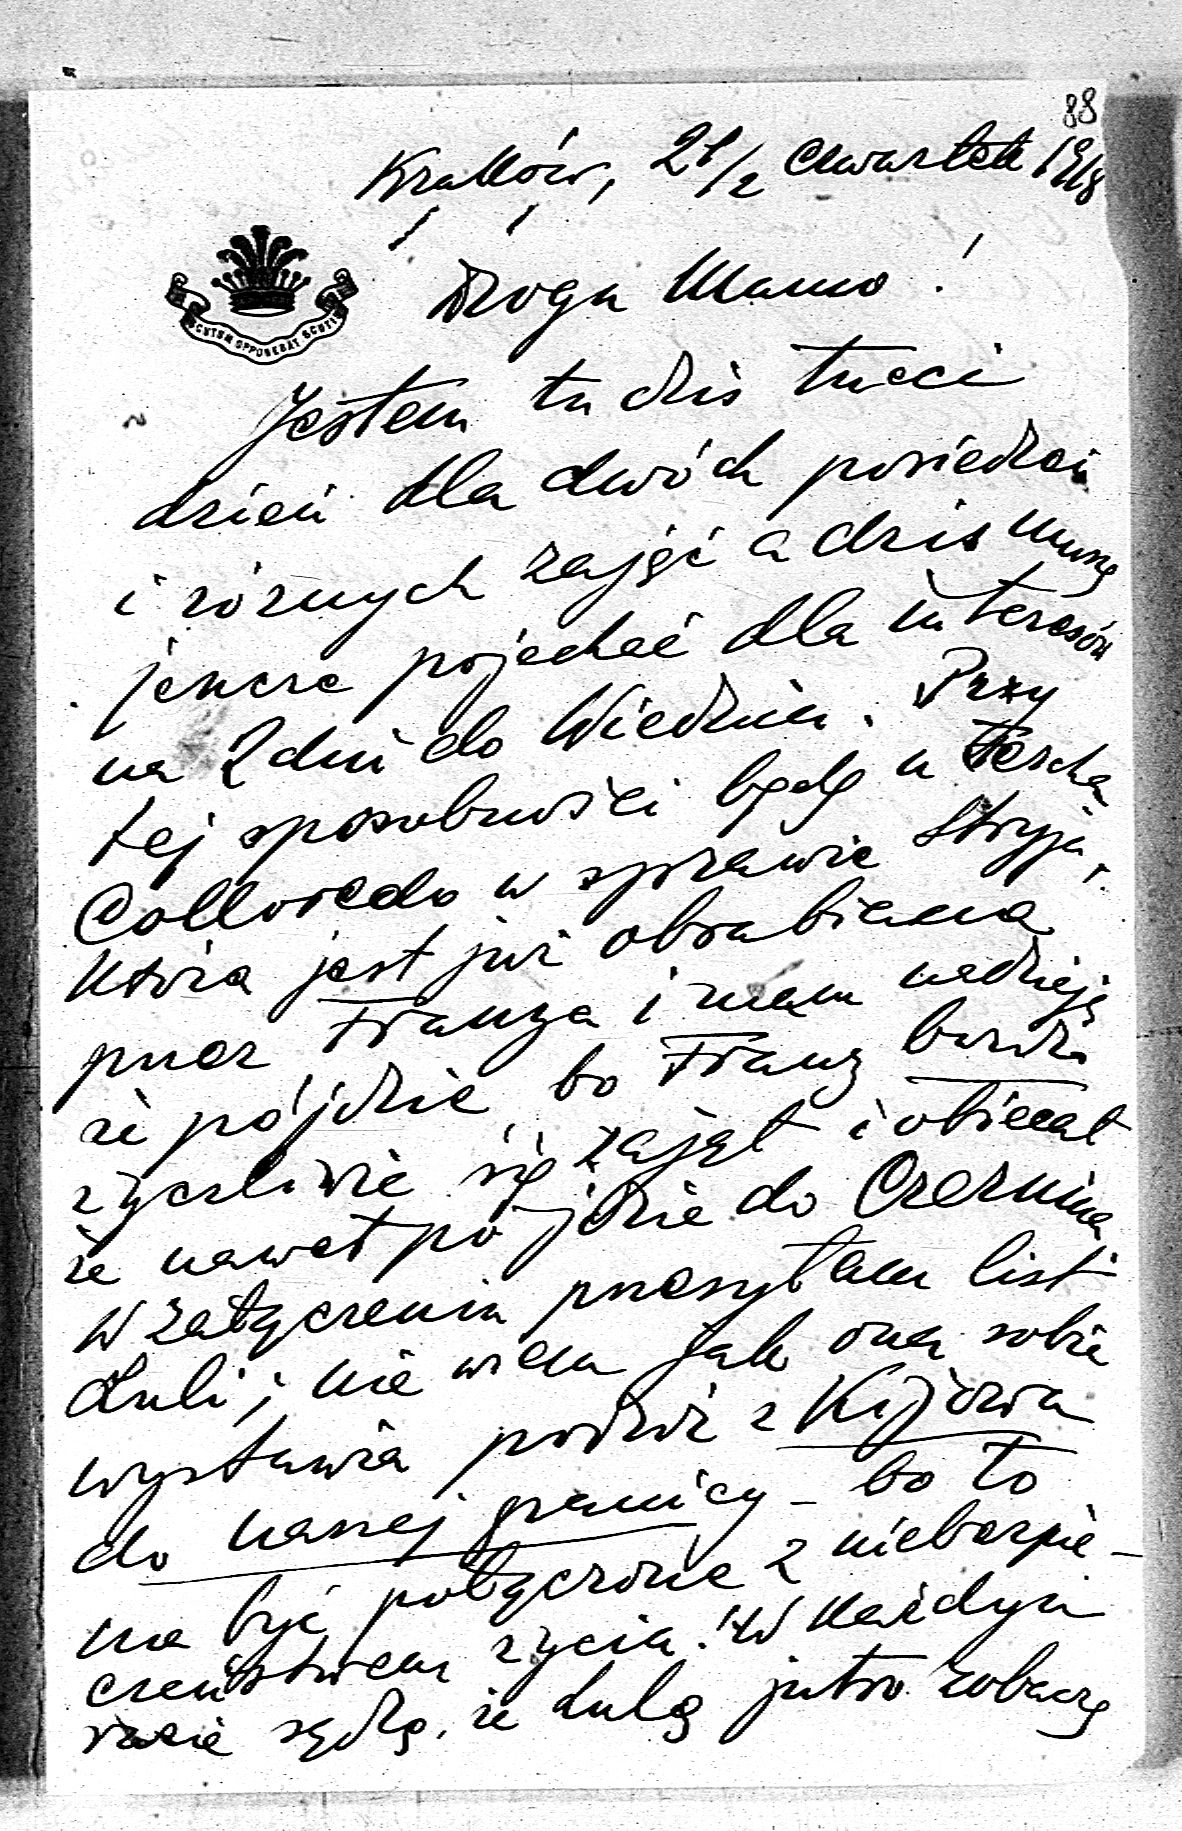 88
Kraków, 21/2 czwartek 1918
SCUTUM OPPONEBAT SCUTIS
Droga Mamo!
Jestem tu dziś trzeci
dzień dla dwóch posiedzeń
i różnych zajęć a dziś muszę
jeszcze pojechać dla interesów
na 2 dni do Wiednia. Przy
tej sposobności będę u
Colloredo w sprawie Stryja,
która jest już obrabiana
przez Franza i mam nadzieję
że pójdzie, bo Franz bardzo
życzliwie się zajął i obiecał
że nawet pójdzie do Czernina
W załączeniu przesyłam list
Luli; nie wiem jak ona sobie
wystawia podróż z Kijowa
do naszej granicy – bo to
ma być połączone z niebezpie-
czeństwem życia. W każdym
razie sądzę, że Lulę jutro zobaczę